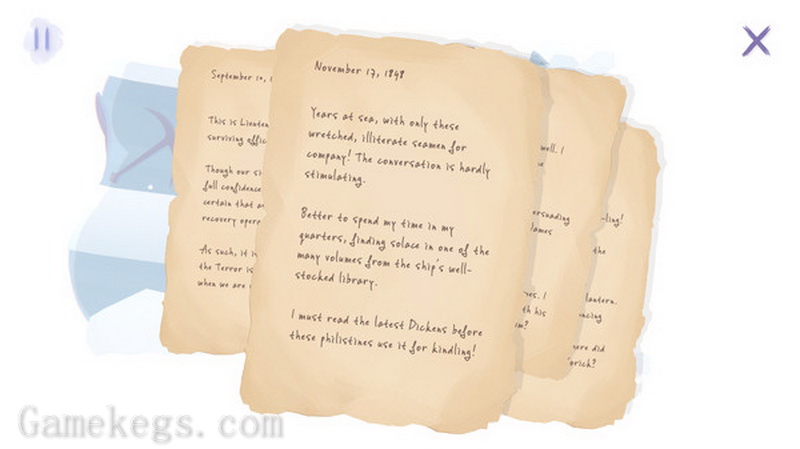 September 10, 1
This is Lieuten
surviving offic
Though our si
full confidence
certain that a
recovery oper
As such, it i
the Terror is
when we are
November 17, 1848
Years at sea, with only these
wretched, illiterate seamen for
company! The conversation is hardly
stimulating.
Better to spend my time in my
quarters, finding solace in one of the
many volumes from the ship's well-
stocked library.
I must read the latest Dickens before
these philistines use it for kindling!
well. I
rsuading
lames
es. I
th his
m?
-ling!
the
lantern.
ncing
ere did
rich?
Gamekegs.com